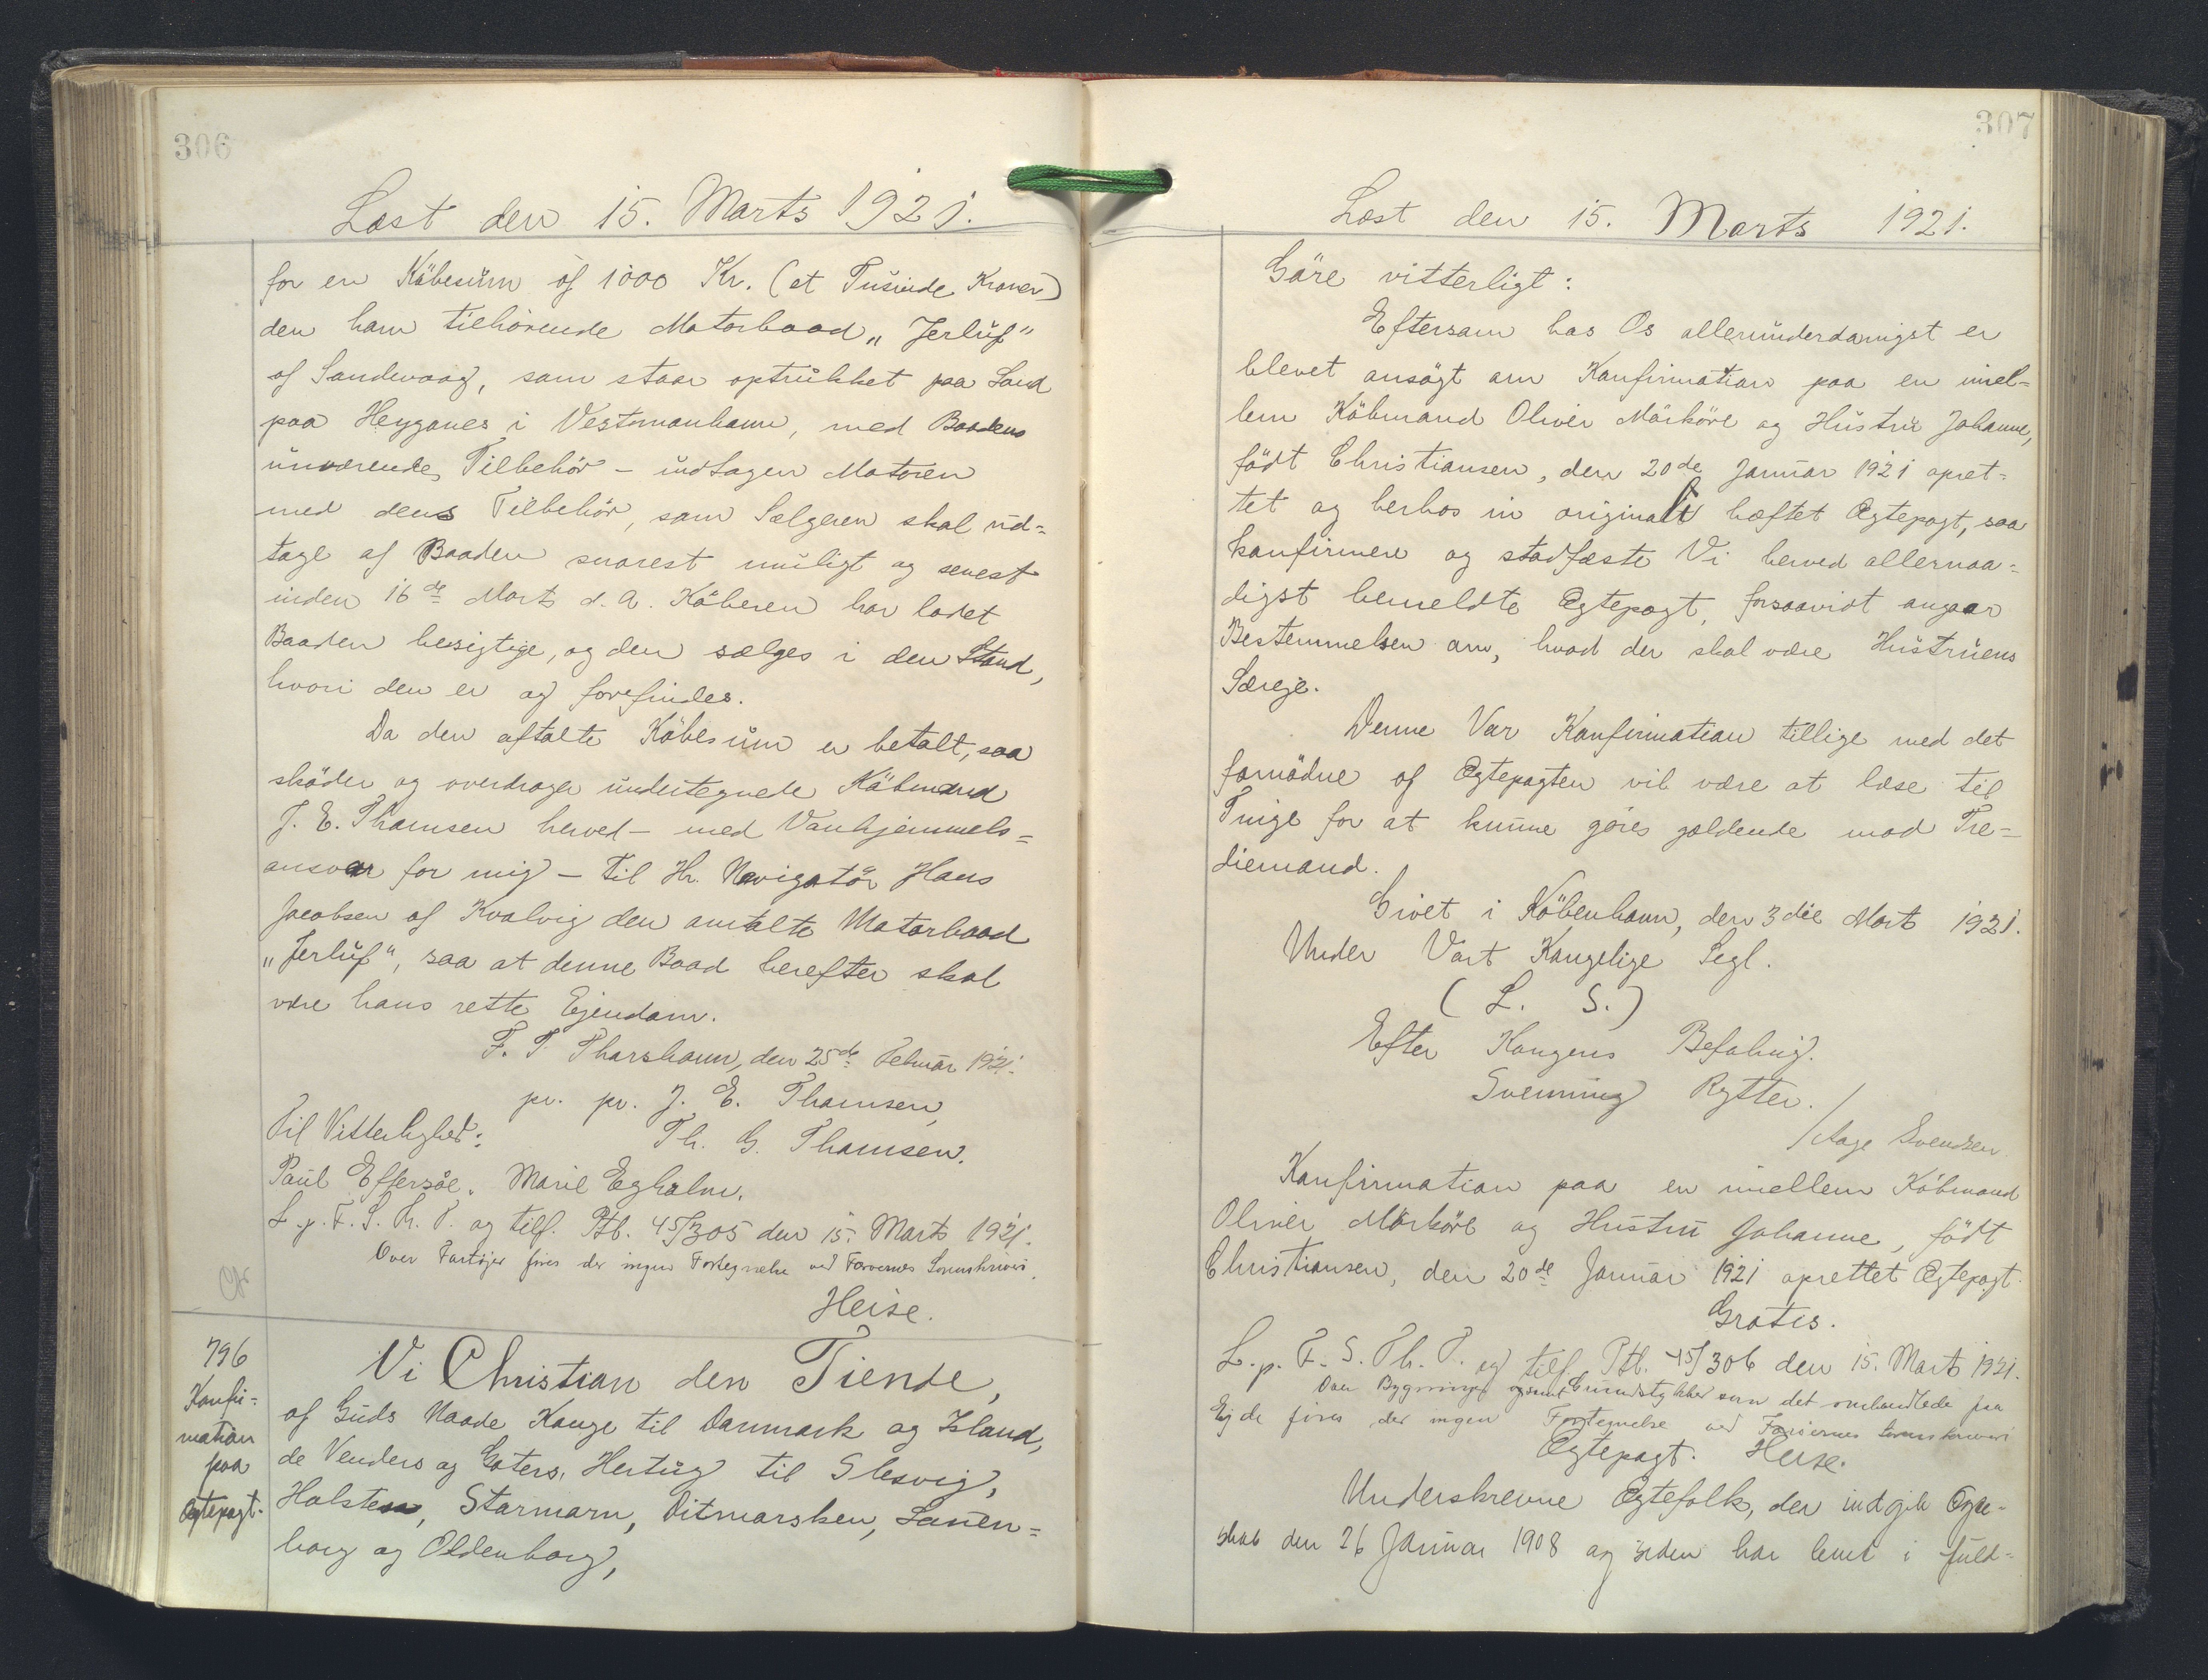 306
Læst den 15. Marts 1921.
for en Köbesum af 1000 Kr. (et Tusinde Kroner)
den ham tilhörende Motorbaad „Jerluf"
af Sandevaag, som staar optrukket paa Land
paa Heyganes i Vestmanhavn, med Baadens
nuværende Tilbehör - undtagen Motoren
med dens Tilbehör, som Sælgeren skal ud=
tage af Baaden snarest muligt og senest
inden 16de Marts d. A. Köberen har ladet
Baaden besigtige, og den sælges i den Stand,
hvori den er og forefindes.
Da den aftalte Köbesum er betalt, saa
sköder og overdrager undertegnede Köbmand
J. E. Thomsen herved - med Vanhjemmels=
ansvar for mig - til Hr. Navigatör Hans
Jacobsen af Kvalvig den omtalte Motorbaad
„Jerluf", saa at denne Baad herefter skal
være hans rette Ejendom.
F. T. Thorshavn, den 25de Februar 1921.
pr. pr. J. E. Thomsen
Til Vitterlighed: Th. G. Thomsen.
Paul Effersöe. Marie Egholm.
L. p. F. S. Th. T. og tilf. Ptb. 45/305 den 15. Marts 1921.
Over Fartöjer föres der ingen Fortegnelse ved Færøernes Sorenskriveri.
Heise.
796
Konfir=
mation
paa
Ægtepagt.
Vi Christian den Tiende,
af Guds Naade Konge til Danmark og Island,
de Venders og Goters, Hertug til Slesvig,
Holsten, Stormarn, Ditmarsken, Lauen=
borg og Oldenborg,
307
Læst den 15. Marts 1921.
Göre vitterligt:
Eftersom hos Os allerunderdanigst er
blevet ansögt om Konfirmation paa en imel=
lem Köbmand Oliver Mörköre og Hustru Johanne,
född Christiansen, den 20de Januar 1921 opret=
tet og herhos in originali hæftet Ægtepagt, saa
konfirmere og stadfæste Vi herved allernaa=
digst bemeldte Ægtepagt, forsaavidt angaar
Bestemmelsen om, hvad der skal være Hustruens
Særeje.
Denne Vor Konfirmation tillige med det
fornödne af Ægtepagten vil være at læse til
Tinge for at kunne göres gældende mod Tre=
diemand.
Givet i Köbenhavn, den 3die Marts 1921.
Under Vort Kongelige Segl.
(L. S.)
Efter Kongens Befaling.
Svenning Rytter.
/Aage Svendsen
Konfirmation paa en imellem Köbmand
Oliver Mörköre og Hustru Johanne, född
Christiansen, den 20de Januar 1921 oprettet Ægtepagt.
Gratis.
L. p. F. S. Th. T. og tilf. Ptb. 45/306 den 15. Marts 1921.
Over Bygninger og samt Grundstykker som det omhandlede paa
Ejde föres der ingen Fortegnelse ved Færøernes Sorenskriveri
Heise.
Ægtepagt.
Underskrevne Ægtefolk, der indgik Ægte-
skab den 26 Januar 1908 og siden har levet i fuld=